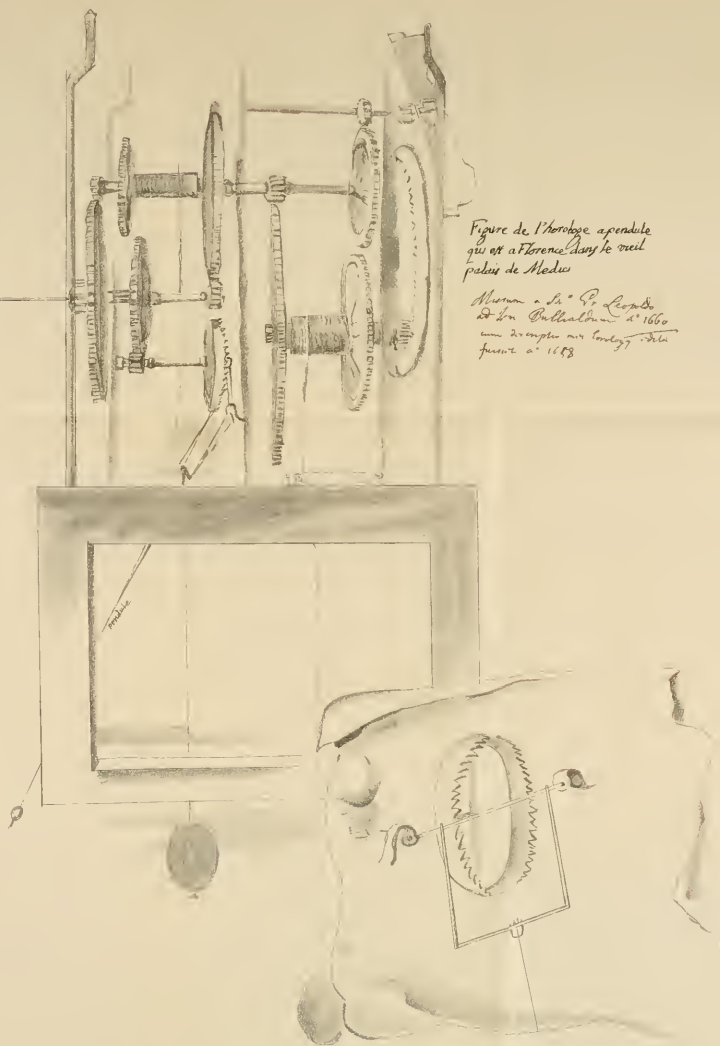 Figure de l'horologe a pendule
qui est a Florence dans le vieil
palais de Medicis
Missum a Ser° Pr. Leopoldo
ad Ism. Bullialdum a° 1660
cum descriptio mei horologij edita
fuerit a° 1658
pendule